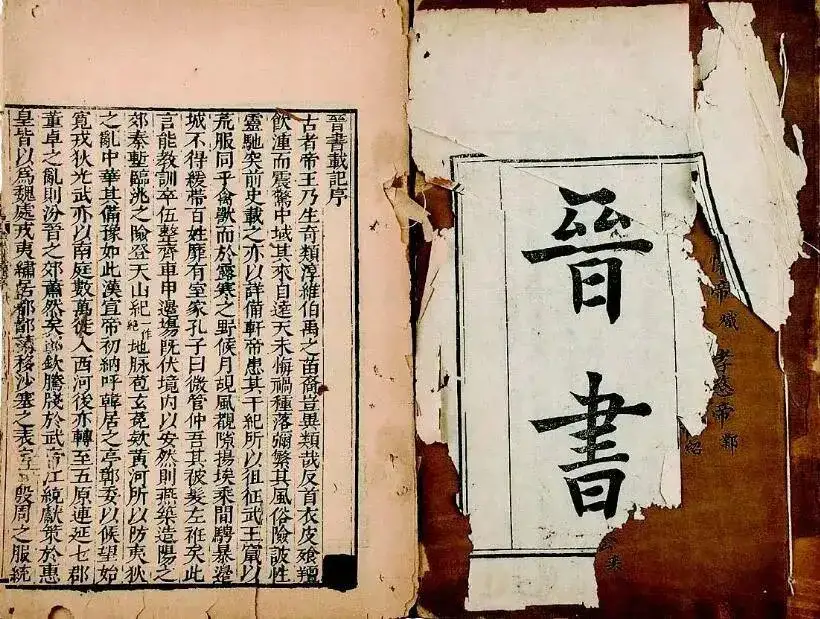 晉書
帝 熾 孝愍帝 鄴
紹
晉書載記序
古者帝王乃生奇類淳維伯禹之苗裔豈異類哉反首衣皮飱羶
飲湩而震驚中域其來自逺天未悔禍種落彌繁其風俗險詖性
靈馳突前史載之亦以詳備軒帝患其干紀所以徂征武王竄以
荒服同乎禽獸而於露寒之野候月覘風覩隙揚埃乘間騁暴邊
城不得緩帶百姓靡有室家孔子曰微管仲吾其被髮左袵矣此
言能教訓卒伍整齊車甲邊塲既伏境内以安然則燕築造陽之
郊秦塹臨洮之險登天山紀一作絶地脉苞玄菟欵黄河所以防夷狄
之亂中華其備豫如此漢宣帝初納呼韓居之亭鄣委以候望始
寛戎狄光武亦以南庭數萬徙入西河後亦轉至五原連延七郡
董卓之亂則汾晉之郊蕭然矣郭欽騰牋於武帝江統獻策於惠
皇皆以爲魏處戎夷繡居都鄙請移沙塞之表殷周之服統